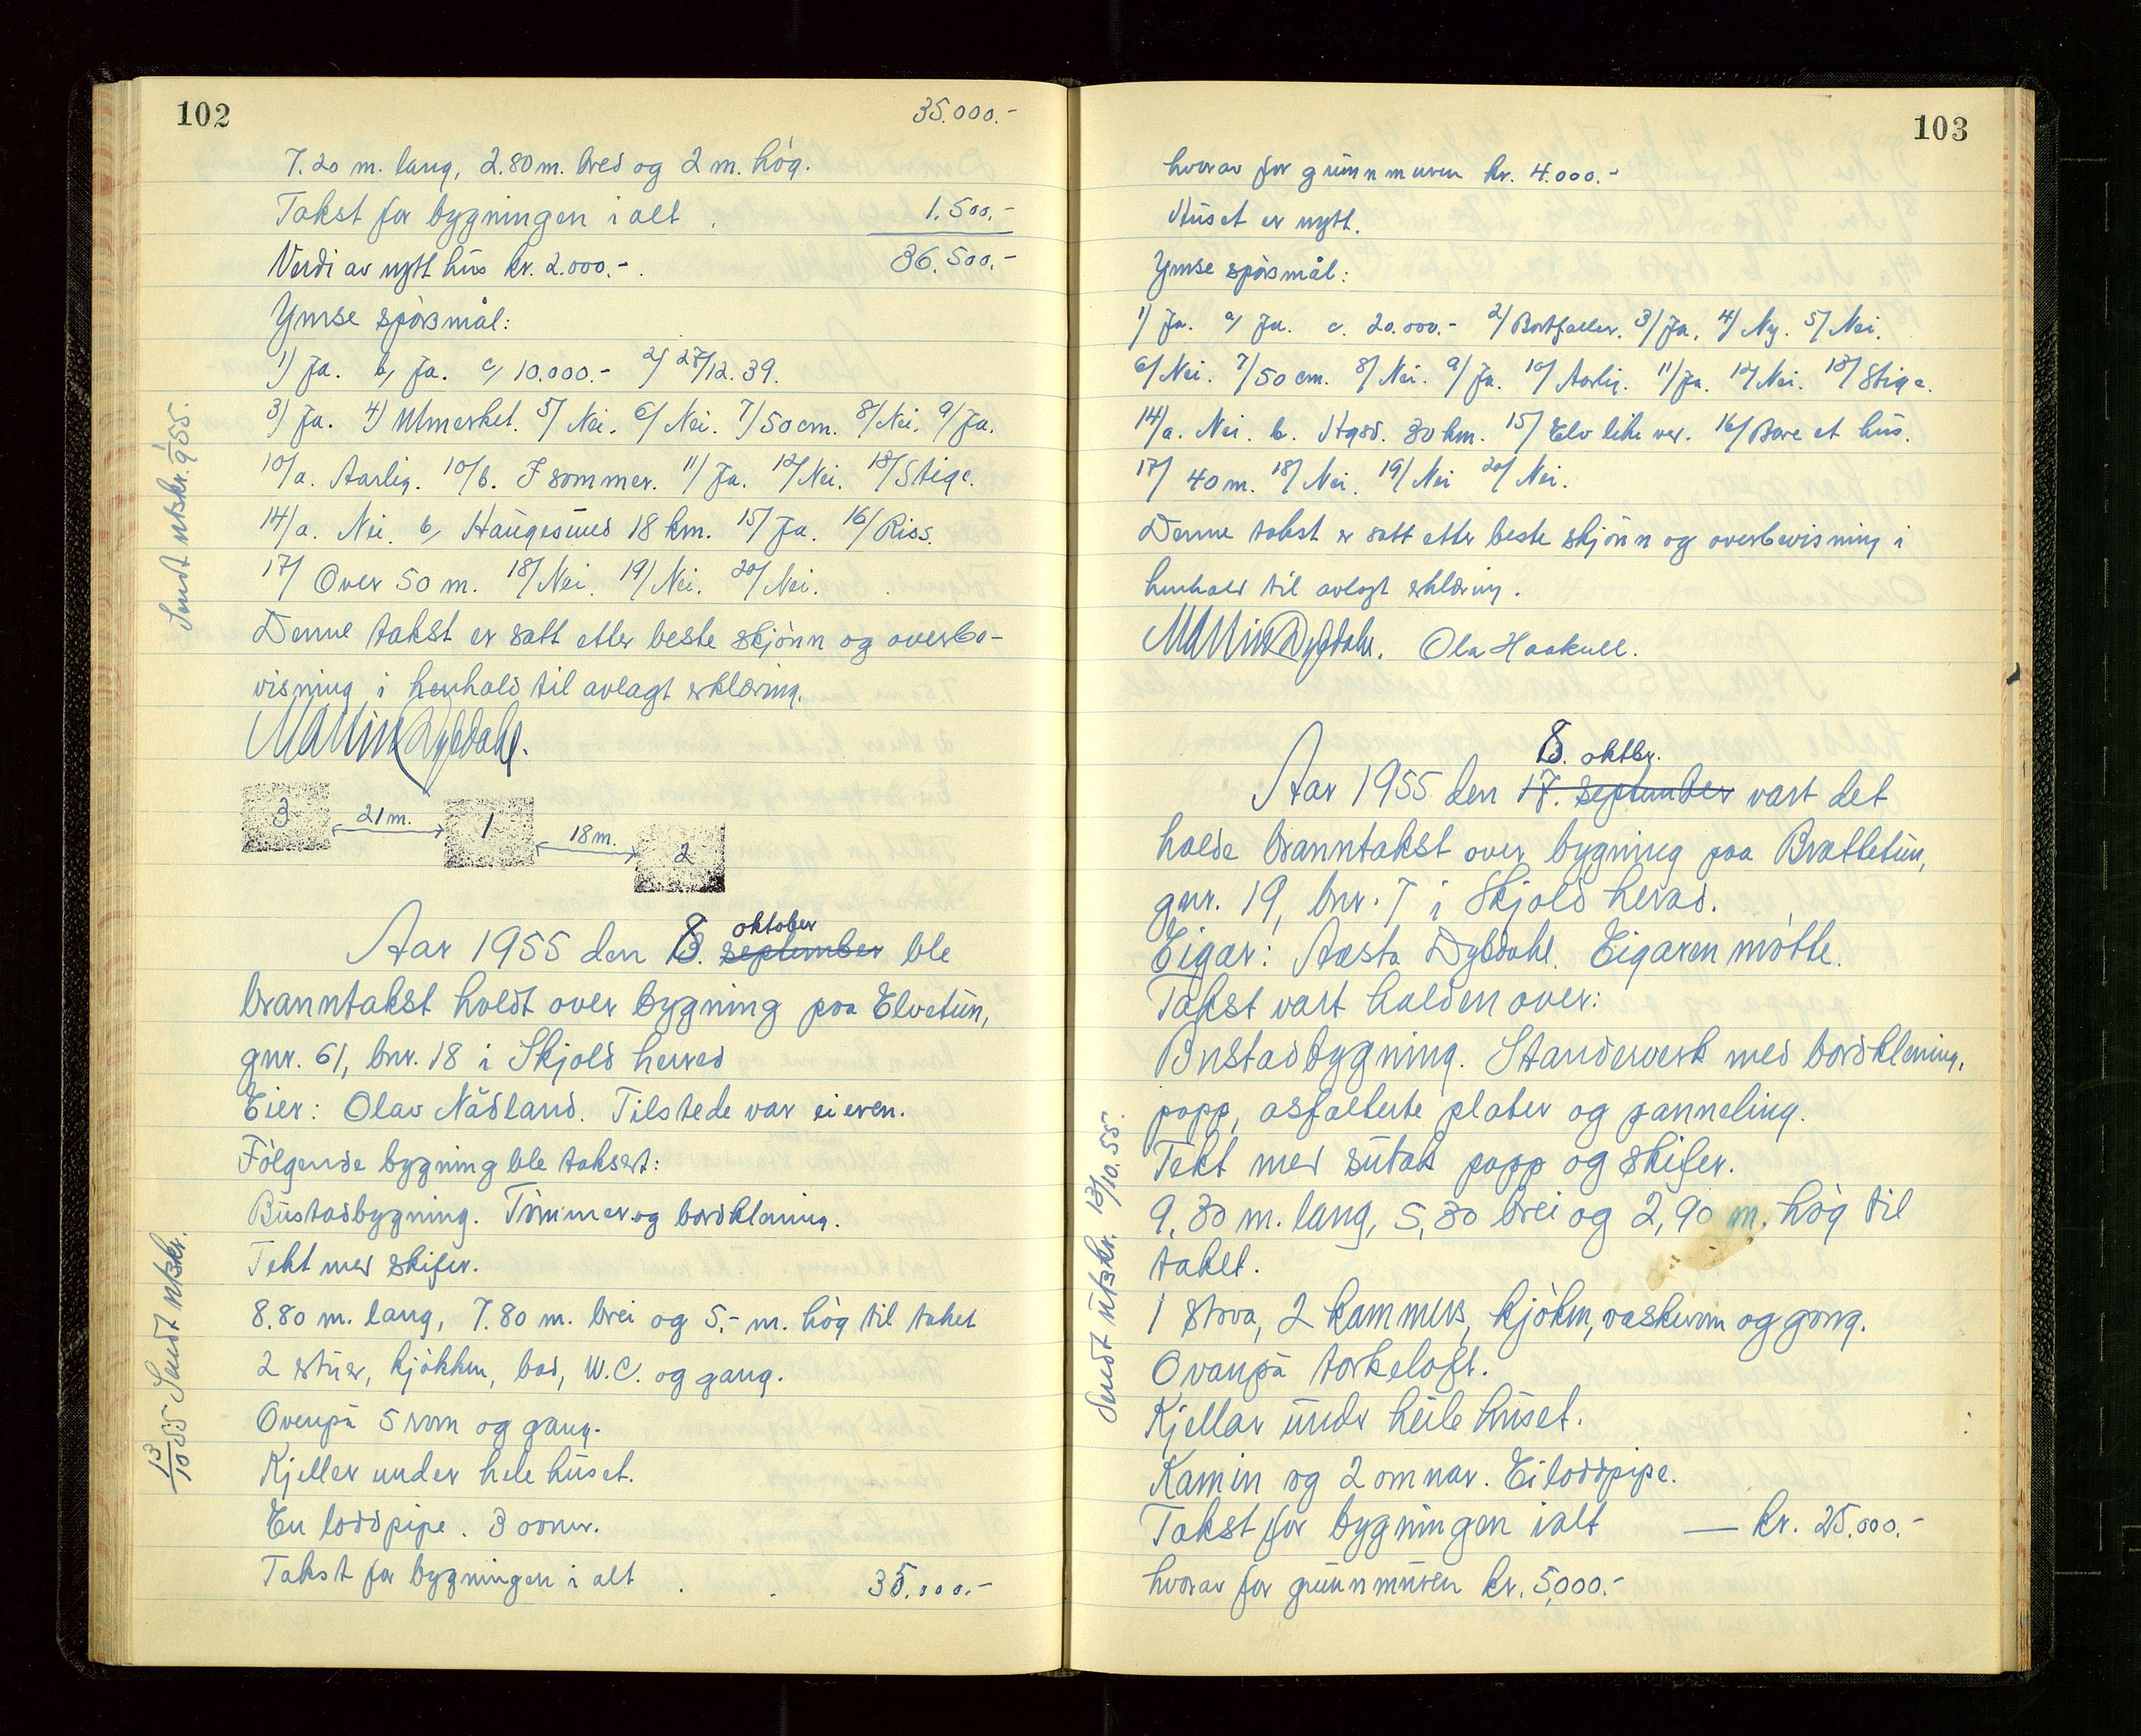 102
35.000.-
7.20 m. lang, 2.80 m. bred og 2 m. hög.
Takst for bygningen i alt . 1.500.-
Verdi av nytt hus kr. 2.000.-. 36.500.-
Ymse spörsmål:
1) Ja. b, Ja. c, 10.000.- 2) 27/12.39.
3) Ja. 4) Utmerket. 5/ Nei. 6/ Nei. 7/ 50 cm. 8/ Nei. 9/ Ja.
10/a. Aarlig. 10/b. I sommer. 11/ Ja. 12/ Nei. 13/ Stige.
14/a. Nei. b, Haugesund 18 km. 15/ Ja. 16/ Riss.
17/ Over 50 m. 18/ Nei. 19/ Nei. 20/ Nei.
Denne takst er satt etter beste skjönn og overbe-
visning i henhold til avlagt erklæring.
Martin Dybdahl.
3 21 m. 1 18 m. 2
Sendt utskr. 9/1 55.
oktober
Aar 1955 den 8. september ble
branntakst holdt over bygning paa Elvetun,
gnr. 61, bnr. 18 i Skjold herred
Eier: Olav Nådland. Tilstede var eieren.
Fölgende bygning ble taksert:
Bustadbygning. Tömmer og bordklening.
Tekt med skifer.
8.80 m. lang, 7.80 m. brei og 5,- m. hög til taket
2 stuer, kjökken, bad, W.C. og gang.
Ovenpå 5 rom og gang.
Kjeller under hele huset.
En loddpipe. 3 ovner.
Takst for bygningen i alt . . 35.000.-
13/10 55 Sendt utskr.
103
hvorav for grunnmuren kr. 4.000.-
Huset er nytt.
Ymse spörsmål:
1) Ja. a, Ja. c. 20.000.- 2/ Bortfaller. 3/ Ja. 4/ Ny. 5/ Nei.
6/ Nei. 7/ 50 cm. 8/ Nei. 9/ Ja. 10/ Aarlig. 11/ Ja. 12/ Nei. 13/ Stige.
14/a. Nei. b. Hgsd. 30 km. 15/ Elv like ved. 16/ Bare et hus.
17/ 40 m. 18/ Nei. 19/ Nei 20/ Nei.
Denne takst er satt etter beste skjönn og overbevisning i
henhold til avlagt erklæring.
Martin Dybdahl. Ola Haakull.
8. oktbr.
Aar 1955 den 17. september vart det
halde branntakst over bygning paa Brattetun,
gnr. 19, bnr. 7 i Skjold herad.
Eigar: Aasta Dybdahl. Eigaren mötte.
Takst vart halden over:
Bustadbygning. Standerverk med bordklening,
papp, asfalterte plater og panneling.
Tekt med sutak papp og skifer.
9,30 m. lang, 5,30 brei og 2,90 m. hög til
taket.
1 stova, 2 kammers, kjöken, vaskerom og gong.
Ovanpå torkeloft.
Kjellar under heile huset.
Kamin og 2 omnar. Ei loddpipe.
Takst for bygningen i alt — kr. 25.000.-
hvorav for grunnmuren kr. 5,000.-
Sendt utskr. 13/10.55.